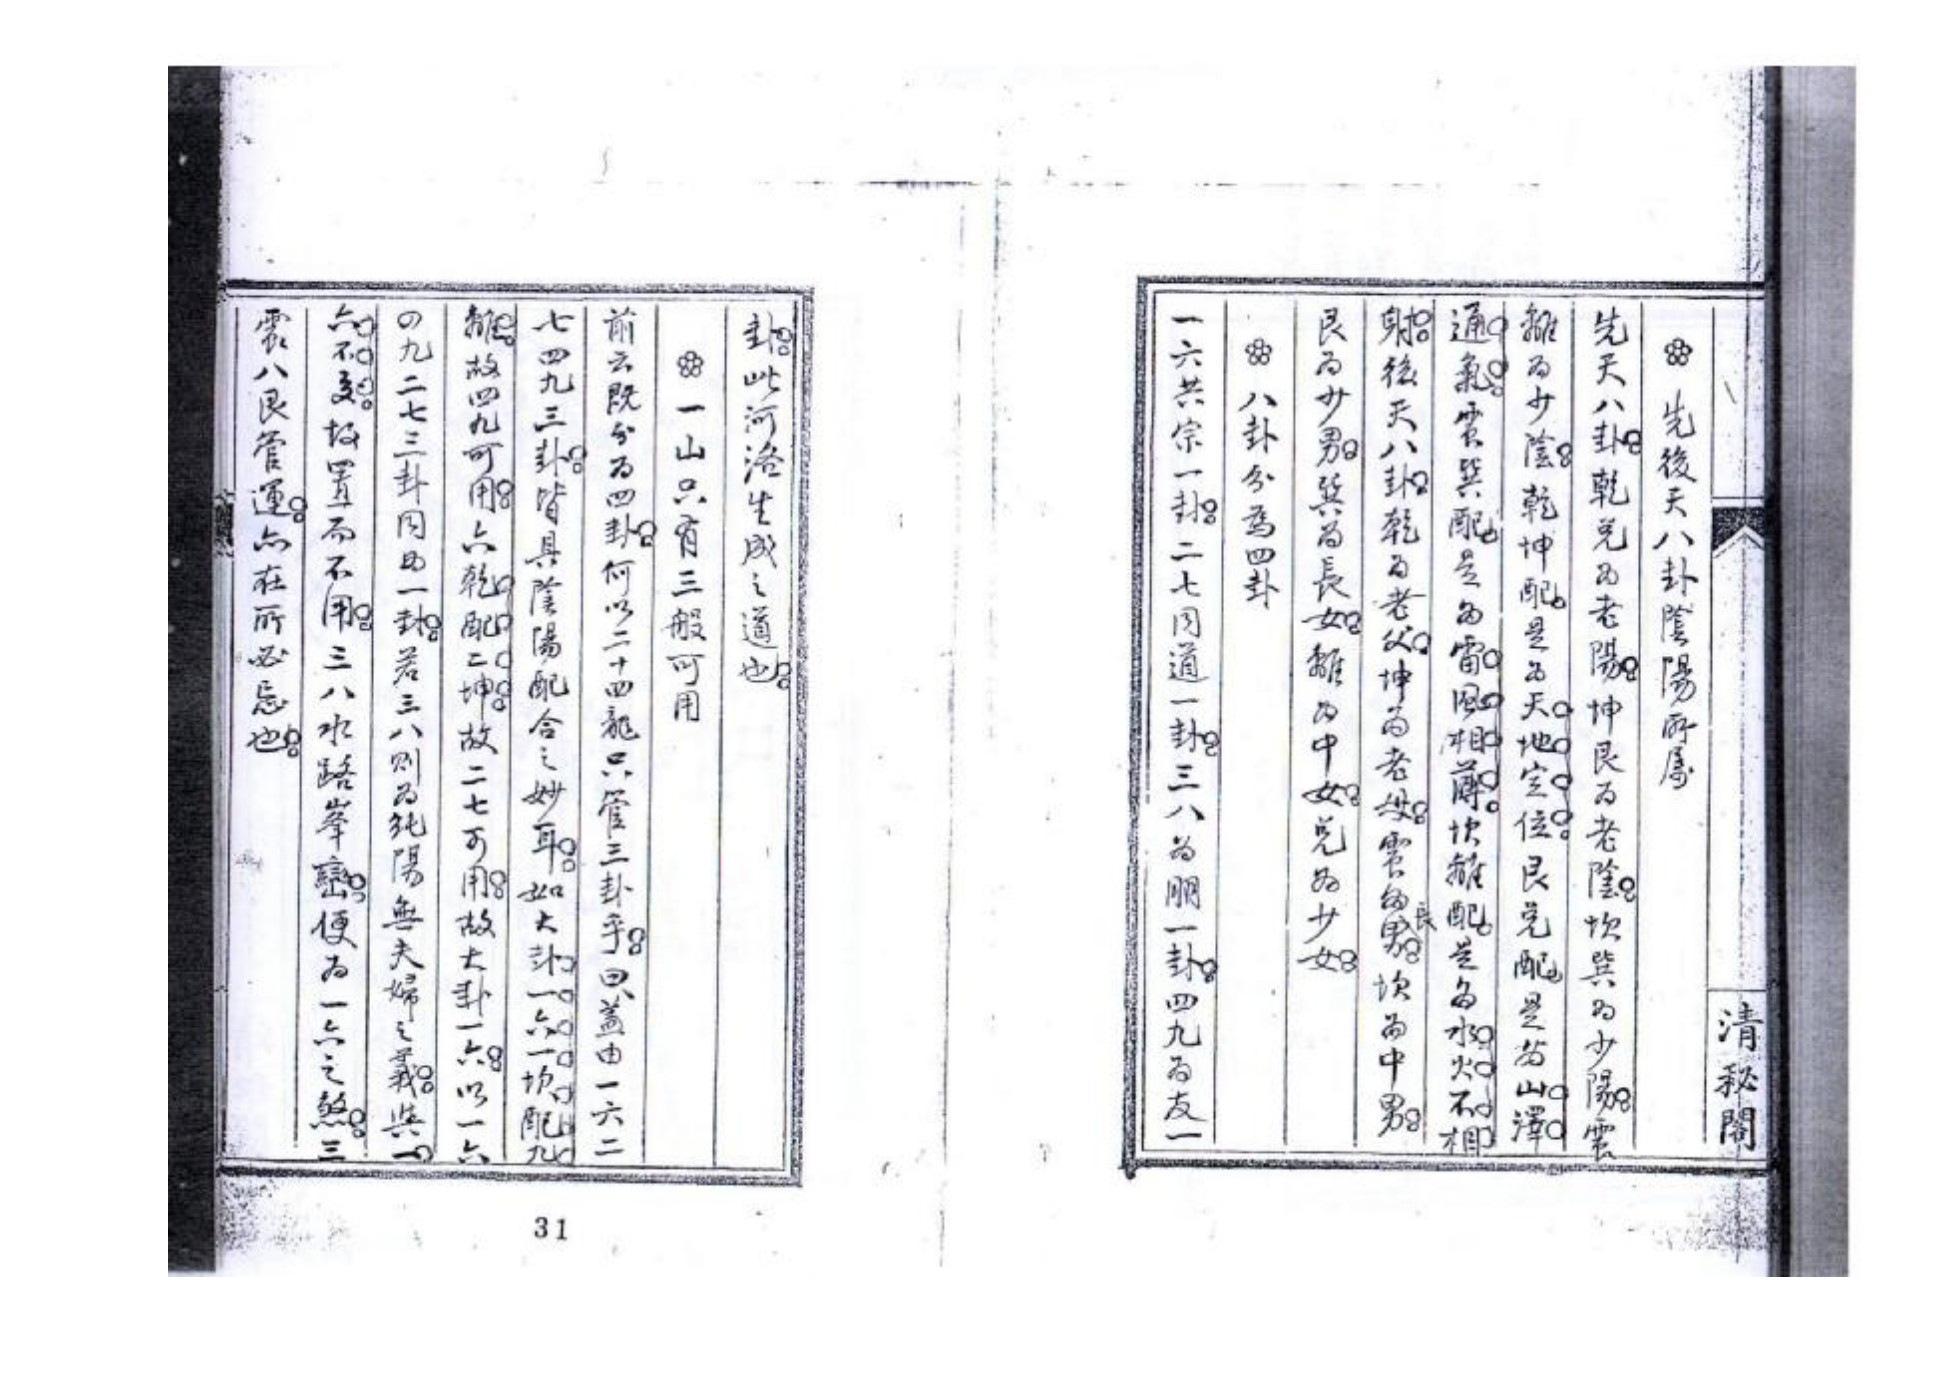 清秘閣
先後天八卦陰陽所屬
先天八卦乾兌為老陽坤艮為老陰坎巽為少陽震
離為少陰乾坤配是為天地定位艮兌配是為山澤
通氣震巽配是為雷風相薄坎離配是為水火不相
射後天八卦乾為老父坤為老母震為長男坎為中男
艮為少男巽為長女離為中女兌為少女
八卦分為四卦
一六共宗一卦二七同道一卦三八為朋一卦四九為友一
卦此河洛生成之道也
一山只有三般可用
前云既分為四卦何以二十四龍只管三卦乎曰蓋由一六二
七四九三卦皆具陰陽配合之妙耳如大卦一六一坎配九
離故四九可用六乾配二坤故二七可用故大卦一六以一六
四九二七三卦同為一卦若三八則為純陽無夫婦之義與一
六不交故置而不用三八水路峯巒便為一六之煞三
震八艮管運亦在所必忌也
31